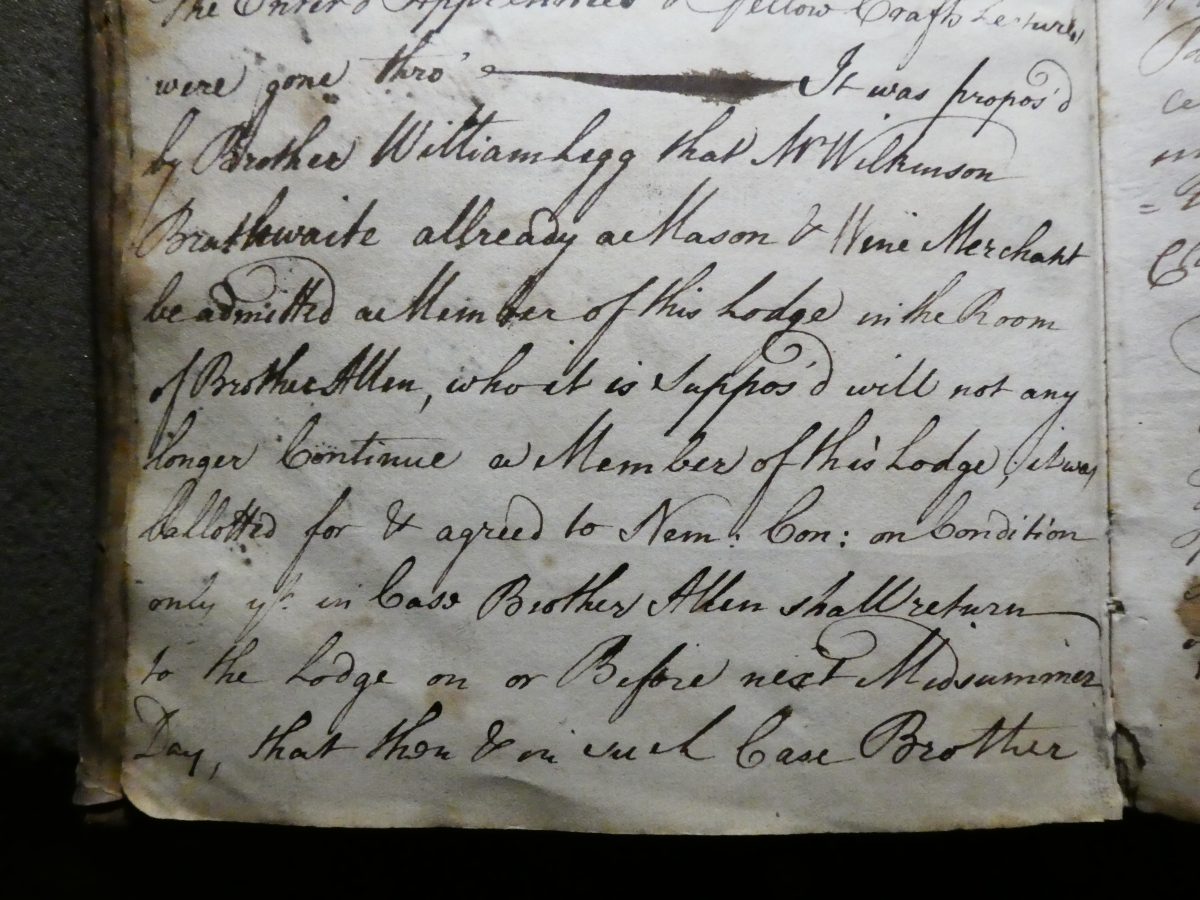 The Enter'd Apprentices & Fellow Crafts Lectures
were gone thro' It was propos'd
by Brother William Legg that Mr Wilkinson
Brathwaite allready a Mason & Wine Merchant
be admitted a Member of this Lodge in the Room
of Brother Allen, who it is Suppos'd will not any
longer Continue a Member of this Lodge, it was
ballotted for & agreed to Nem: Con: on Condition
only yt. in Case Brother Allen shall return
to the Lodge on or Before next Midsummer
Day, that then & in such Case Brother